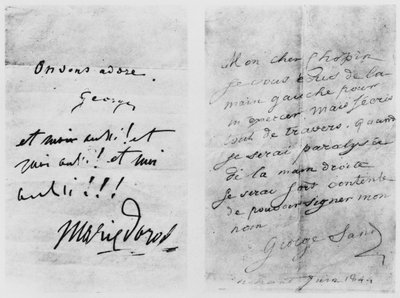 On vous adore.
George
et moi aussi! et
moi aussi! et moi
aussi!!!
Marie Dorval
Mon cher Chopin
je vous écris de la
main gauche pour
m'exercer mais j'écris
tout de travers. Quand
je serai paralysée
de la main droite
je serai fort contente
de pouvoir signer mon
nom
George Sand
juin 1844